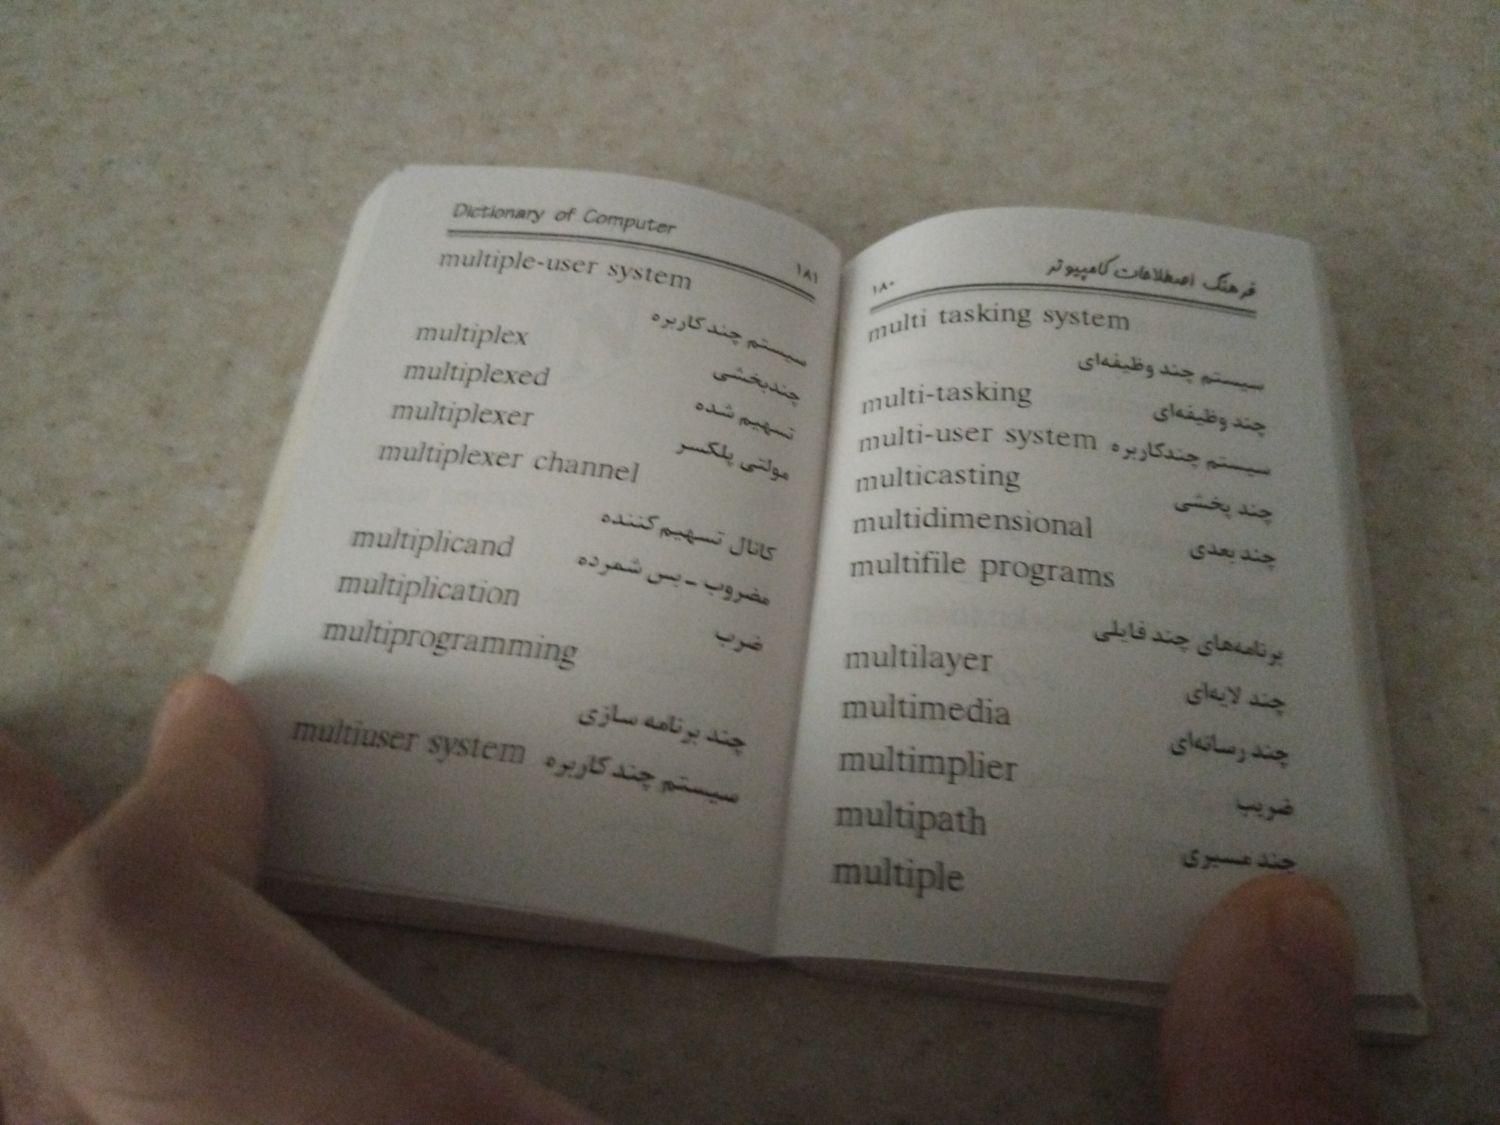 فرهنگ اصطلاحات کامپیوتر ۱۸۰
multi tasking system
سیستم چند وظیفه‌ای
multi-tasking چند وظیفه‌ای
multi-user system سیستم چندکاربره
multicasting چند پخشی
multidimensional چند بعدی
multifile programs
برنامه‌های چند فایلی
multilayer چند لایه‌ای
multimedia چند رسانه‌ای
multimplier ضریب
multipath چند مسیری
multiple
Dictionary of Computer ۱۸۱
multiple-user system
سیستم چندکاربره
multiplex چندبخشی
multiplexed تسهیم شده
multiplexer مولتی پلکسر
multiplexer channel
کانال تسهیم‌کننده
multiplicand مضروب - بس شمرده
multiplication ضرب
multiprogramming
چند برنامه سازی
multiuser system سیستم چندکاربره